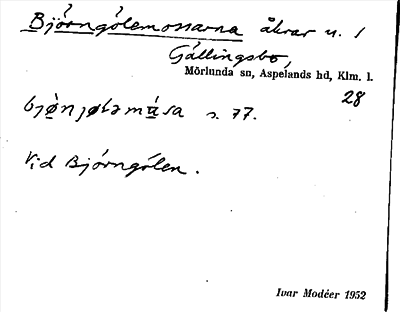 Björngölemossarna åkrar u. 1
Gällingsbo,
Mörlunda sn, Aspelands hd, Klm. l.
28
s. 77.
Vid Björngölen.
Ivar Modéer 1952